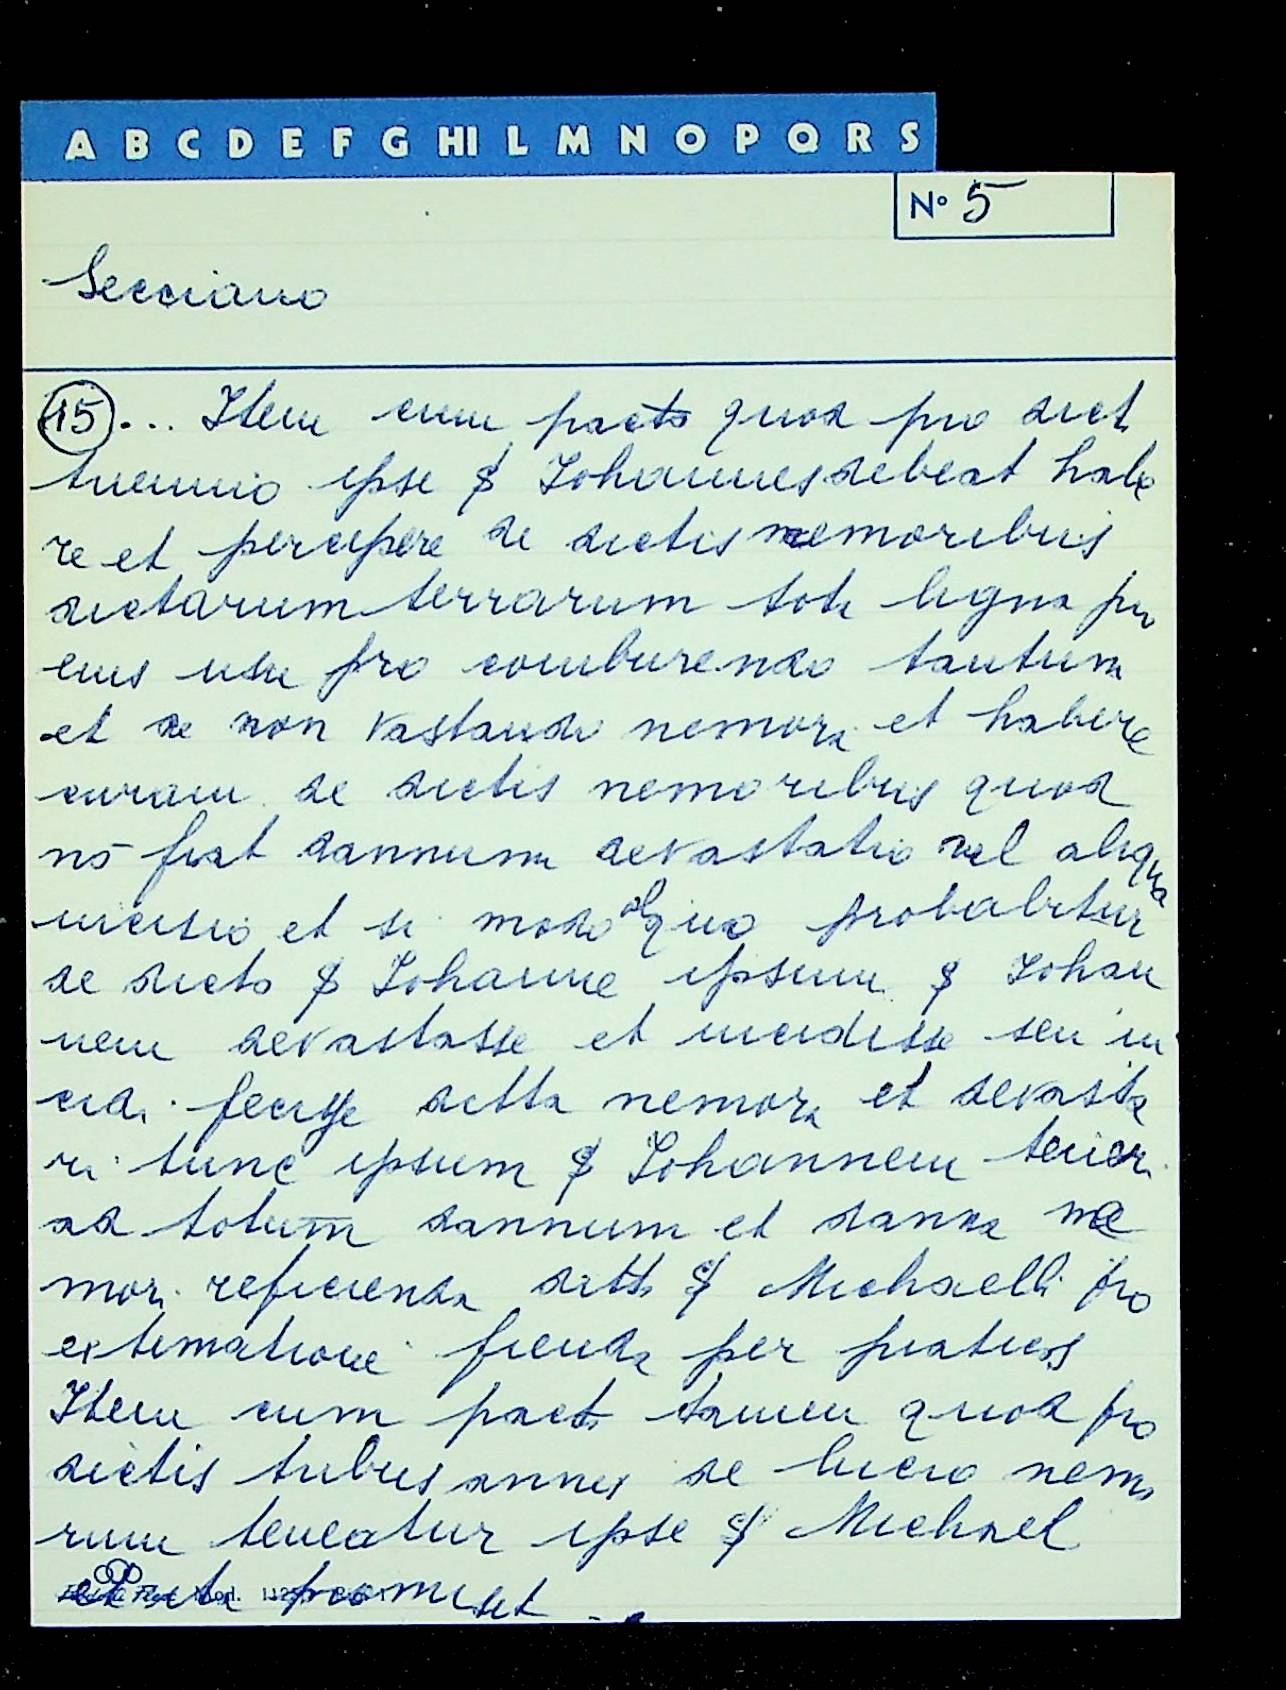 A B C D E F G HI L M N O P Q R S
N° 5
Secciano
(15)... Item cum pacto quod pro dict
triennio ipse $ Johannes debeat habe
re et percipere de dictis nemoribus
dictarum terrarum tot ligna pro
eius usu pro comburendo tantum
et de non vastando nemora et habere
curam de dictis nemoribus quod
nō fiat dannum devastatio vel aliqua
incisio et si modo alquo probabitur
de dicto $ Johanne ipsum $ Johan
nem devastasse et incidisse seu in
cidi fecisse ditta nemora et devasta
ri tunc ipsum $ Johannem teneri
ad totum dannum et danna ne
mori reficienda ditto $ Michaelli pro
extimatione fienda per praticos
Item cum pacto tamen quod pro
dictis tribus annis de lucro nemo
rum teneatur ipse $ Michael
et ita promisit